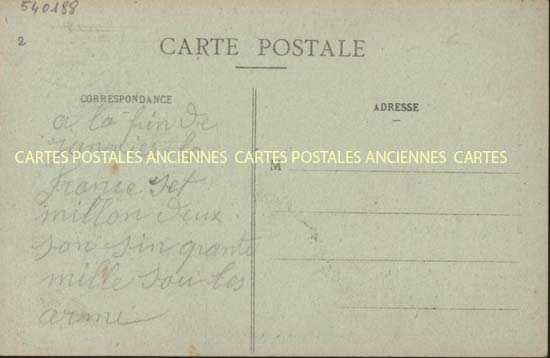 540188
2
CARTE POSTALE
CORRESPONDANCE
ADRESSE
a la fin de
Janvier la
CARTES POSTALES ANCIENNES CARTES POSTALES ANCIENNES CARTES
M
france set
millon deux
son sin quante
mille sou les
armi